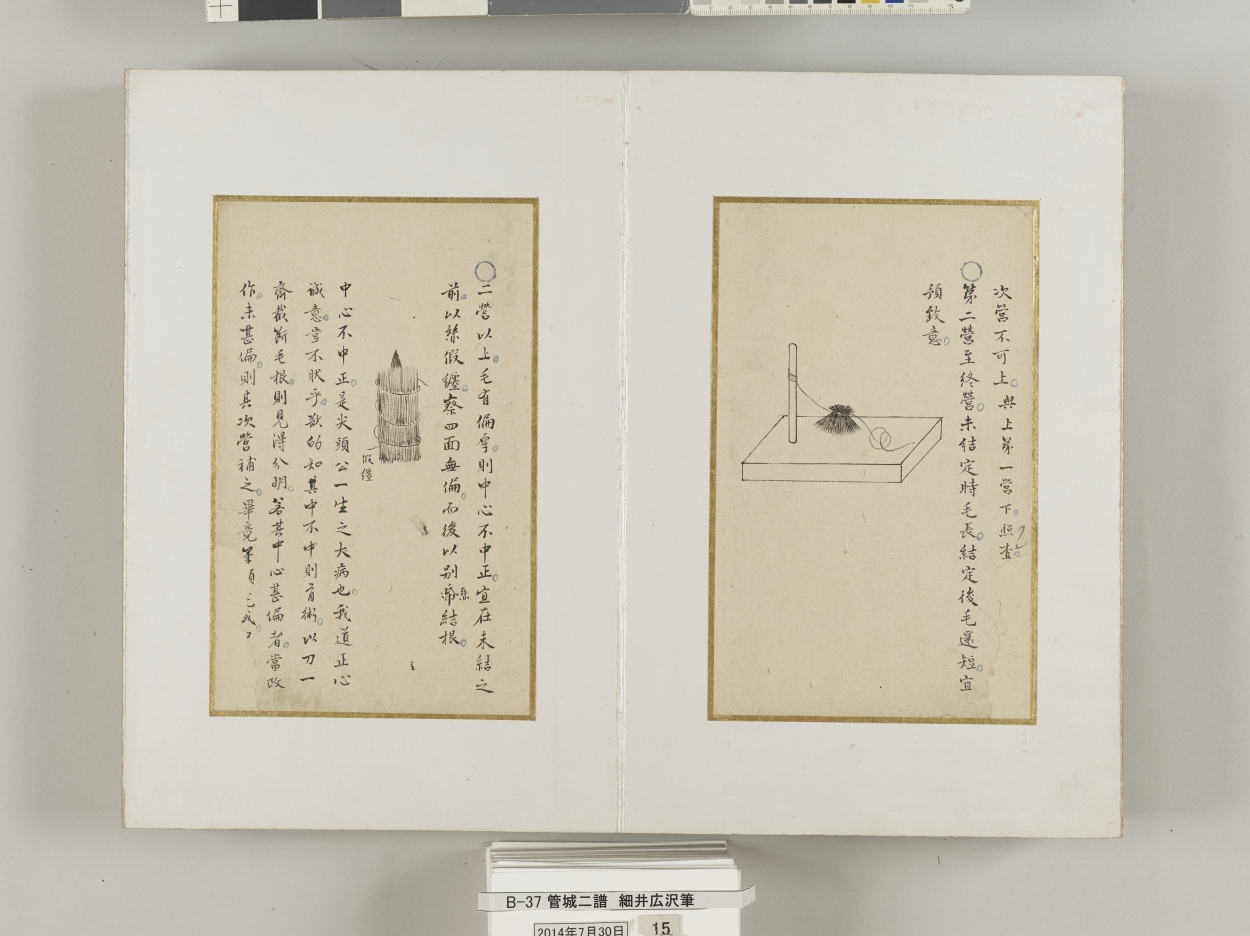 次営不可上与上第一営下照査
○第二営至終営未結定時毛長結定後毛還短宜
預致意
○二営以上毛有偏耷則中心不中正宜在未結之
前以絲假纏察四面無偏而後以別結根
假纏
中心不中正是尖頭公一生之大病也我道正心
誠意豈不狀乎欲的知其中不中則有術以刀一
齊截斷毛根則見得分明若其中心甚偏者當改
作未甚偏則其次營補之畢竟筆
B-37 管城二譜 細井広沢筆
2014年7月30日
15